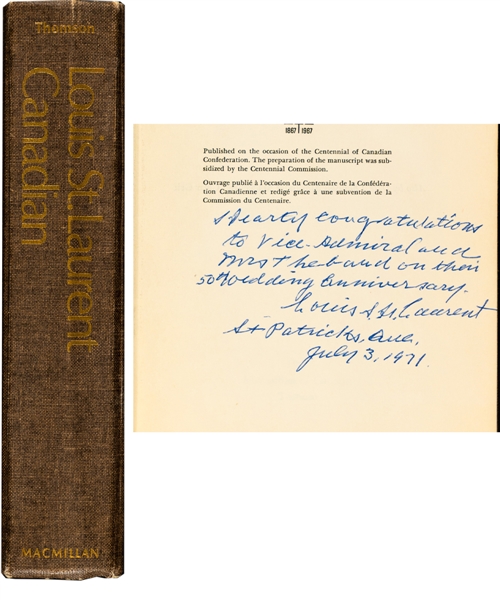 Thomson
Louis St Laurent
Canadian
MACMILLAN
1867 1967
Published on the occasion of the Centennial of Canadian
Confederation. The preparation of the manuscript was sub-
sidized by the Centennial Commission.
Ouvrage publié à l'occasion du Centenaire de la Confédéra-
tion Canadienne et redigé grâce à une subvention de la
Commission du Centenaire.
Hearty congratulations
to Vice-Admiral and
Mrs on their
50th Wedding Anniversary.
Louis S St. Laurent
St Patricks, Que.
July 3, 1971.